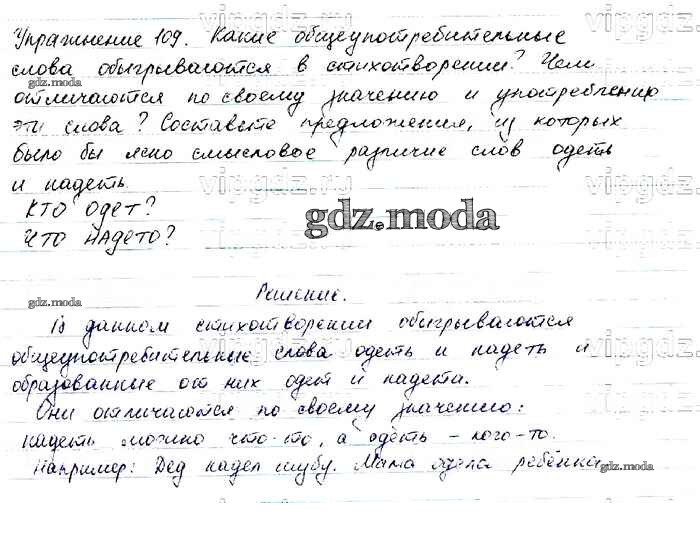 Упражнение 109. Какие общеупотребительные
слова обыгрываются в стихотворении? Чем
отличаются по своему значению и употреблению
эти слова? Составьте предложения, из которых
было бы ясно смысловое различие слов одеть
и надеть.
КТО ОДЕТ?
ЧТО НАДЕТО?
Решение.
В данном стихотворении обыгрываются
общеупотребительные слова одеть и надеть и
образованные от них одет и надета.
Они отличаются по своему значению:
надеть можно что-то, а одеть – кого-то.
Например: Дед надел шубу. Мама одела ребёнка
vipgdz.ru
vipgdz.ru
vipgdz.ru
vipgdz.ru
vipgdz.ru
vipgdz.ru
gdz.moda
gdz.moda
gdz.moda
gdz.moda